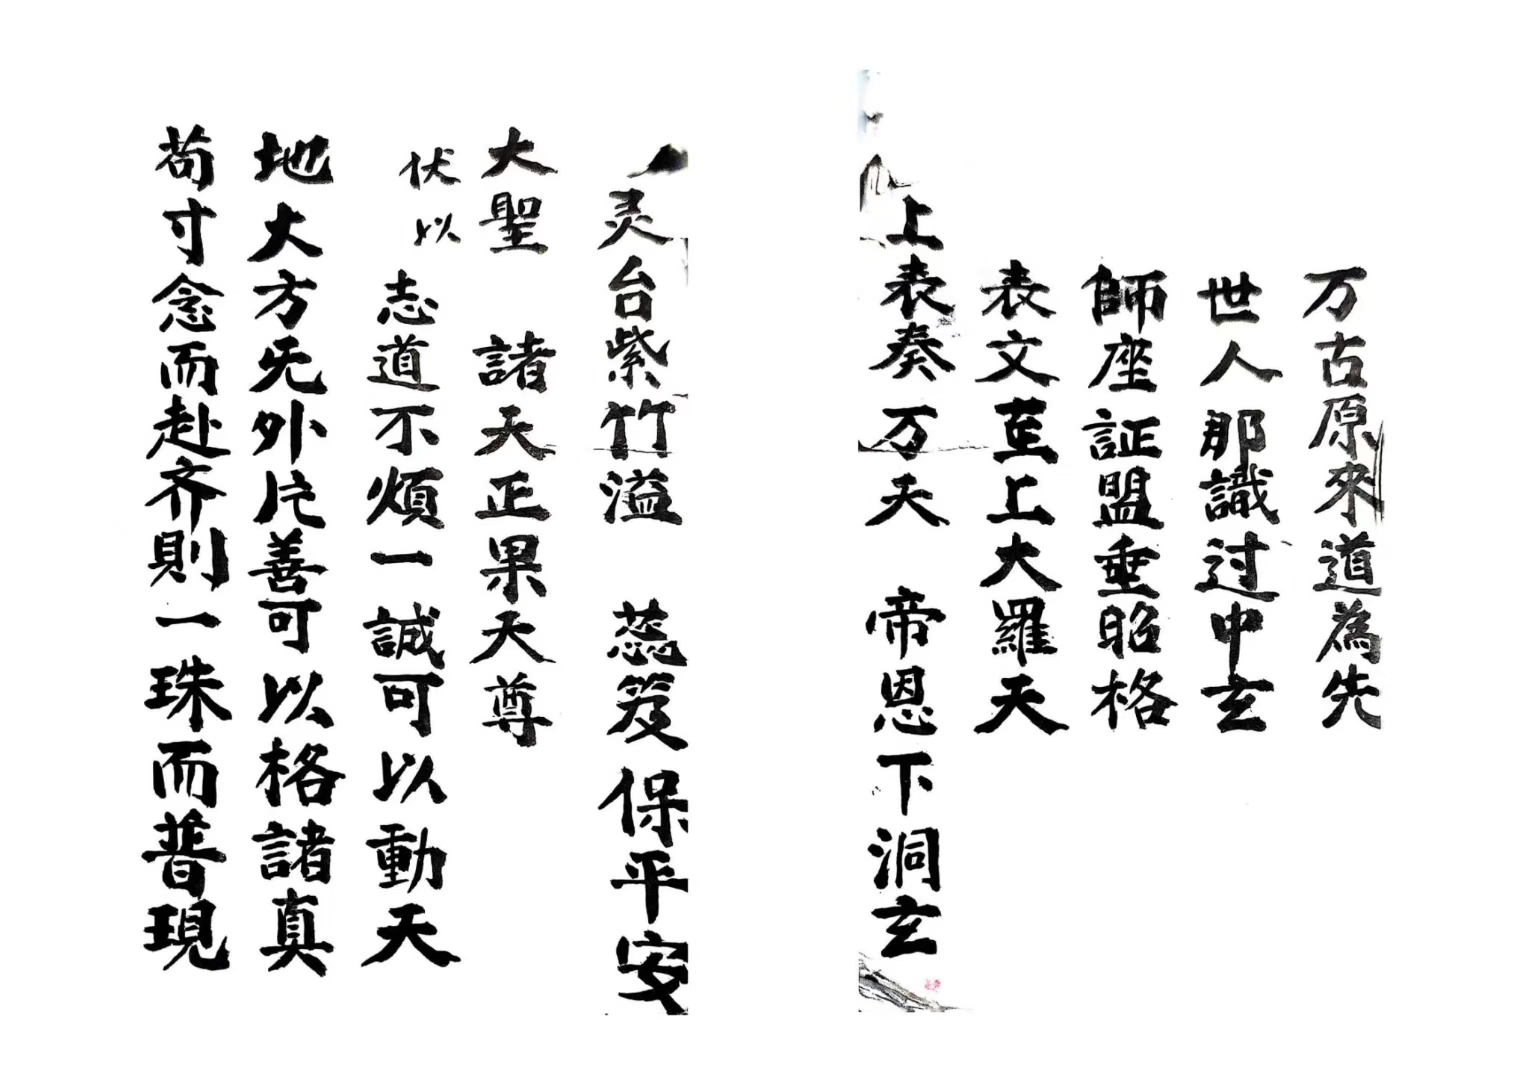 万古原來道為先
世人那識过中玄
師座証盟垂昭格
表文至上大羅天
上表奏万天 帝恩下洞玄
灵台紫竹溢 蕊笈保平安
大聖 諸天正果天尊
伏以 志道不煩一誠可以動天
地大方旡外片善可以格諸真
苟寸念而赴齐則一珠而普現